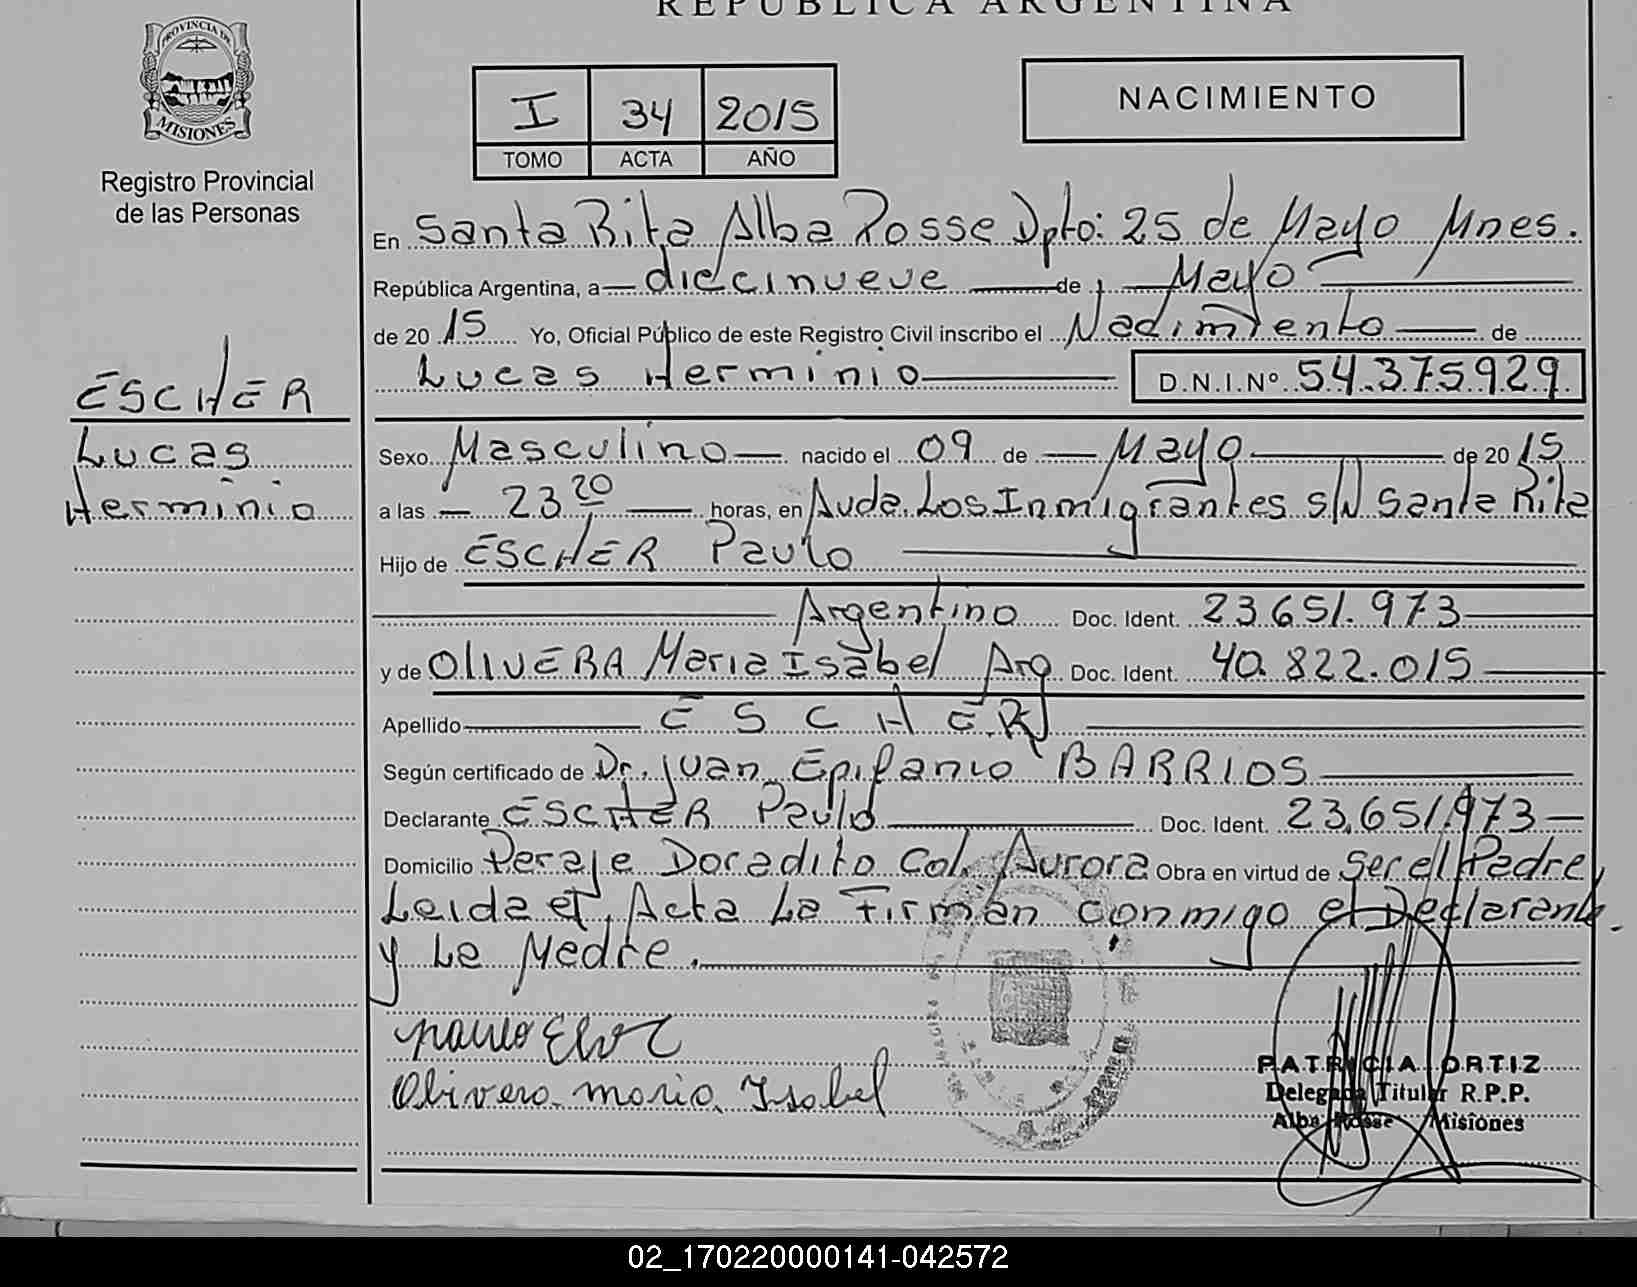 REPUBLICA ARGENTINA
PROVINCIA DE
MISIONES
Registro Provincial
de las Personas
I 34 2015
TOMO ACTA AÑO
NACIMIENTO
ESCHER
Lucas
Herminio
En Santa Rita Alba Posse Dpto: 25 de Mayo Mnes.
República Argentina, a diecinueve de Mayo
de 2015 Yo, Oficial Público de este Registro Civil inscribo el Nacimiento de
Lucas Herminio D.N.I.Nº 54.375.929
Sexo Masculino nacido el 09 de Mayo de 2015
a las 23 20 horas, en Avda. Los Inmigrantes s/N Santa Rita
Hijo de ESCHER Paulo
Argentino Doc. Ident. 23.651.973
y de OLIVERA Maria Isabel Arg Doc. Ident. 40.822.015
Apellido ESCHER
Según certificado de Dr. Juan Epifanio BARRIOS
Declarante ESCHER Paulo Doc. Ident. 23.651.973
Domicilio Peraje Doradito Col. Aurora Obra en virtud de Ser el Padre
Leida el Acta La Firman conmigo el Declarante
y La Madre.
Olivera maria Isabel
PATRICIA ORTIZ
Delegada Titular R.P.P.
Alba Posse Misiones
02_170220000141-042572